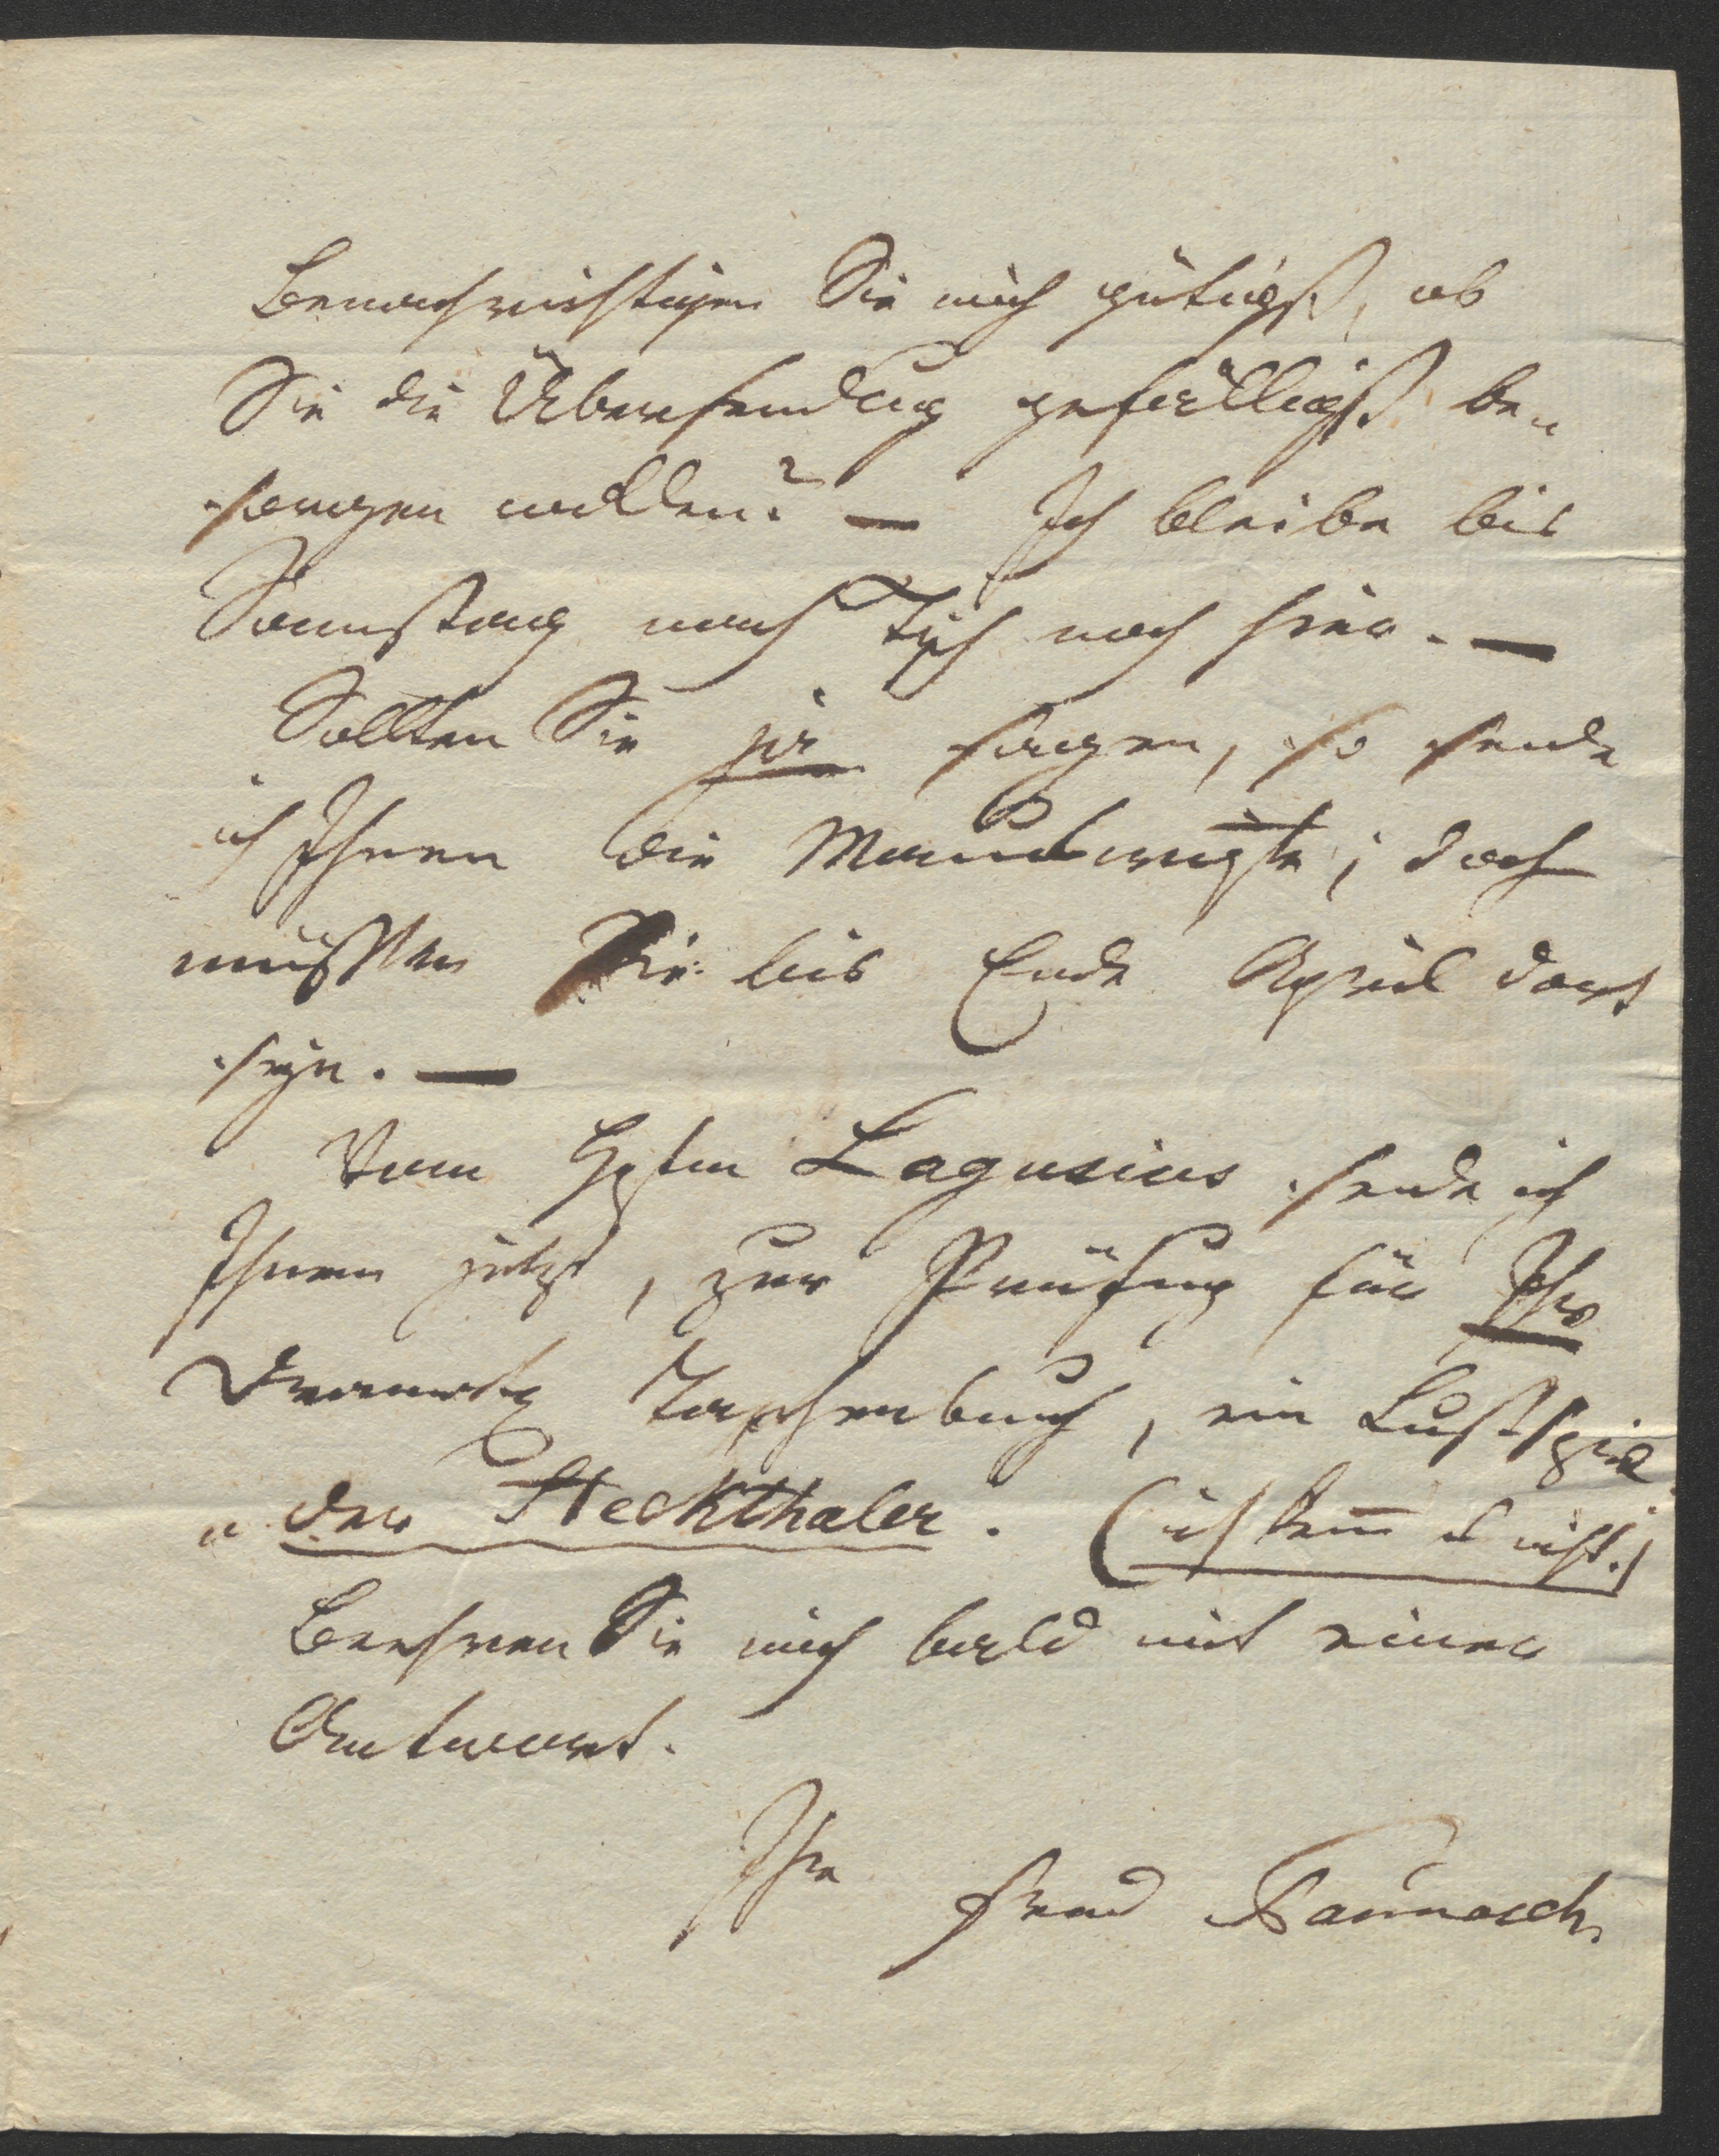 Benachrichtigen Sie mich gütigst, ob
Sie die Übersendung gefälligst be„
sorgen wollen? — Ich bleibe bis
Samstag nach Tisch noch hier. —
Sollten Sie ja sagen, so sende
ich Ihnen die Manuscripte; doch
müßten Sie bis Ende April dort
seyn. —
Vom Lagusius sende ich
Ihnen jetzt, zur Prüfung für Ihr
Dramat. Taschenbuch, ein Lustspiel
„ der Heckthaler. (ich kenn es nicht.)
Beehren Sie mich bald mit einer
Antwort.
Ihr Freund